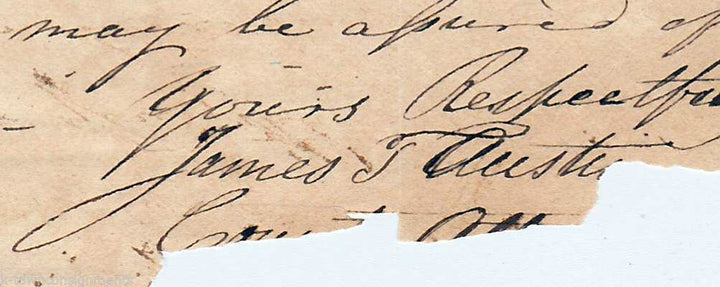 may be assured of
Yours Respectfu
James T Austi
County Att